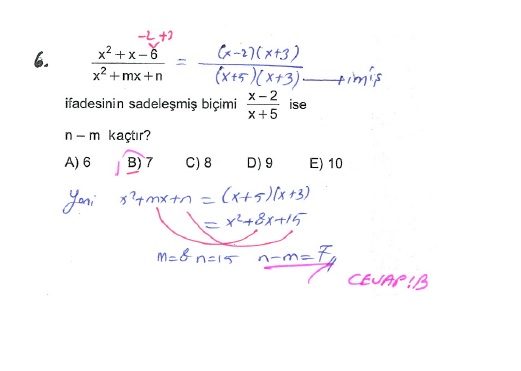 -2 +3
6. x² + x – 6 / x² + mx + n = (x-2)(x+3) / (x+5)(x+3) → imiş
ifadesinin sadeleşmiş biçimi x – 2 / x + 5 ise
n – m kaçtır?
A) 6 B) 7 C) 8 D) 9 E) 10
Yani x²+mx+n = (x+5)(x+3)
= x²+8x+15
m=8 n=15 n-m=7//
CEVAP: B